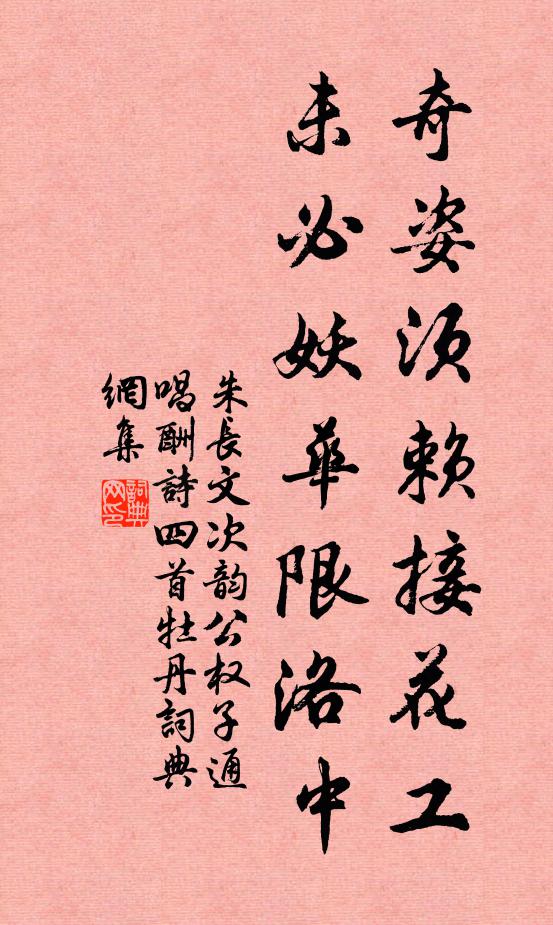 奇姿须赖接花工
未必妖华限洛中
朱長文次韵公权子通
唱酬詩四首牡丹詞典
網集
詞典网印